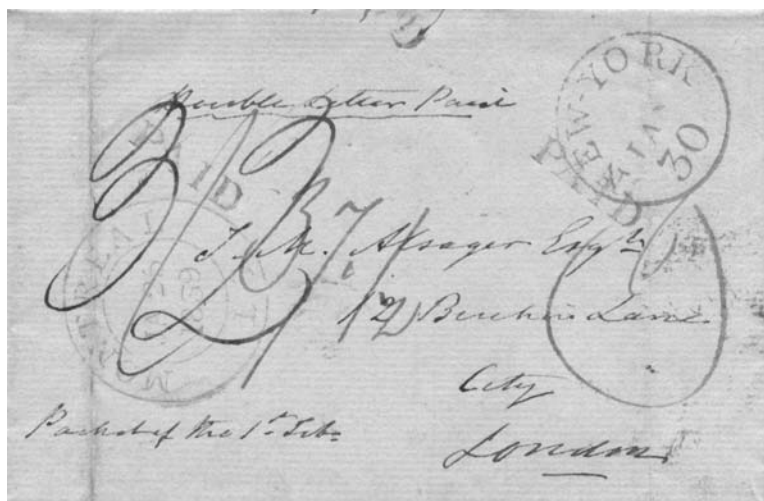 Double Letter Paid
NEW-YORK
JAN
30
PAID
PAID
MONTREAL
T. M. Alsager Esqre
12 Birchin Lane
City
London
Packet of the 1st Feb